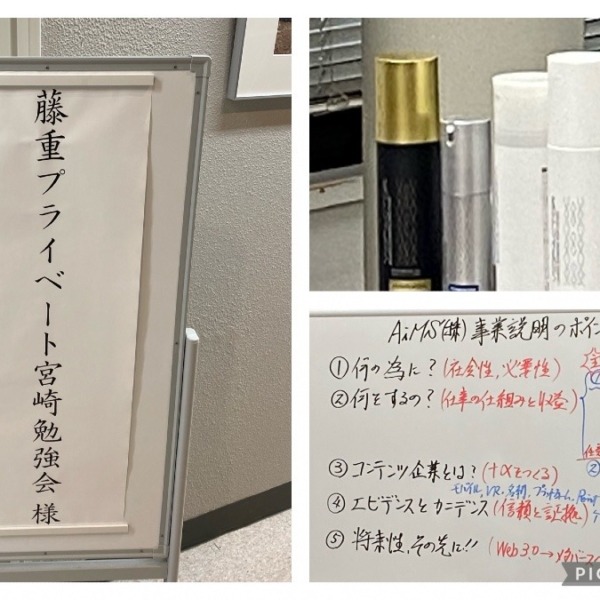 藤重プライベート宮崎勉強会 様
AiMS(株)事業説明のポイン
①何の為に?(社会性,必要性)
②何をするの?(仕事の仕組みと収益)
③コンテンツ企業とは?(+αをつくる)
モバイル,VR,名刺,プラットホーム,Point
④エビデンスとカニデンス(信頼と証拠)
⑤将来性,その先に!!(Web3.0→メタバース
PIC